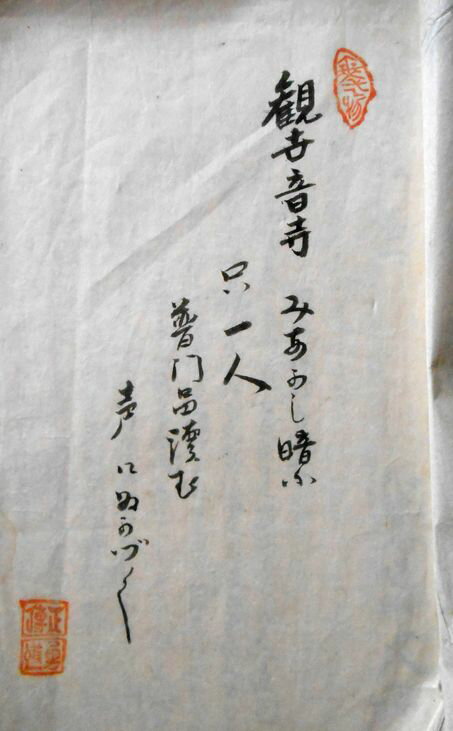 観世音寺 みあかし暗
只一人
普門品讀む
声にぬかづく